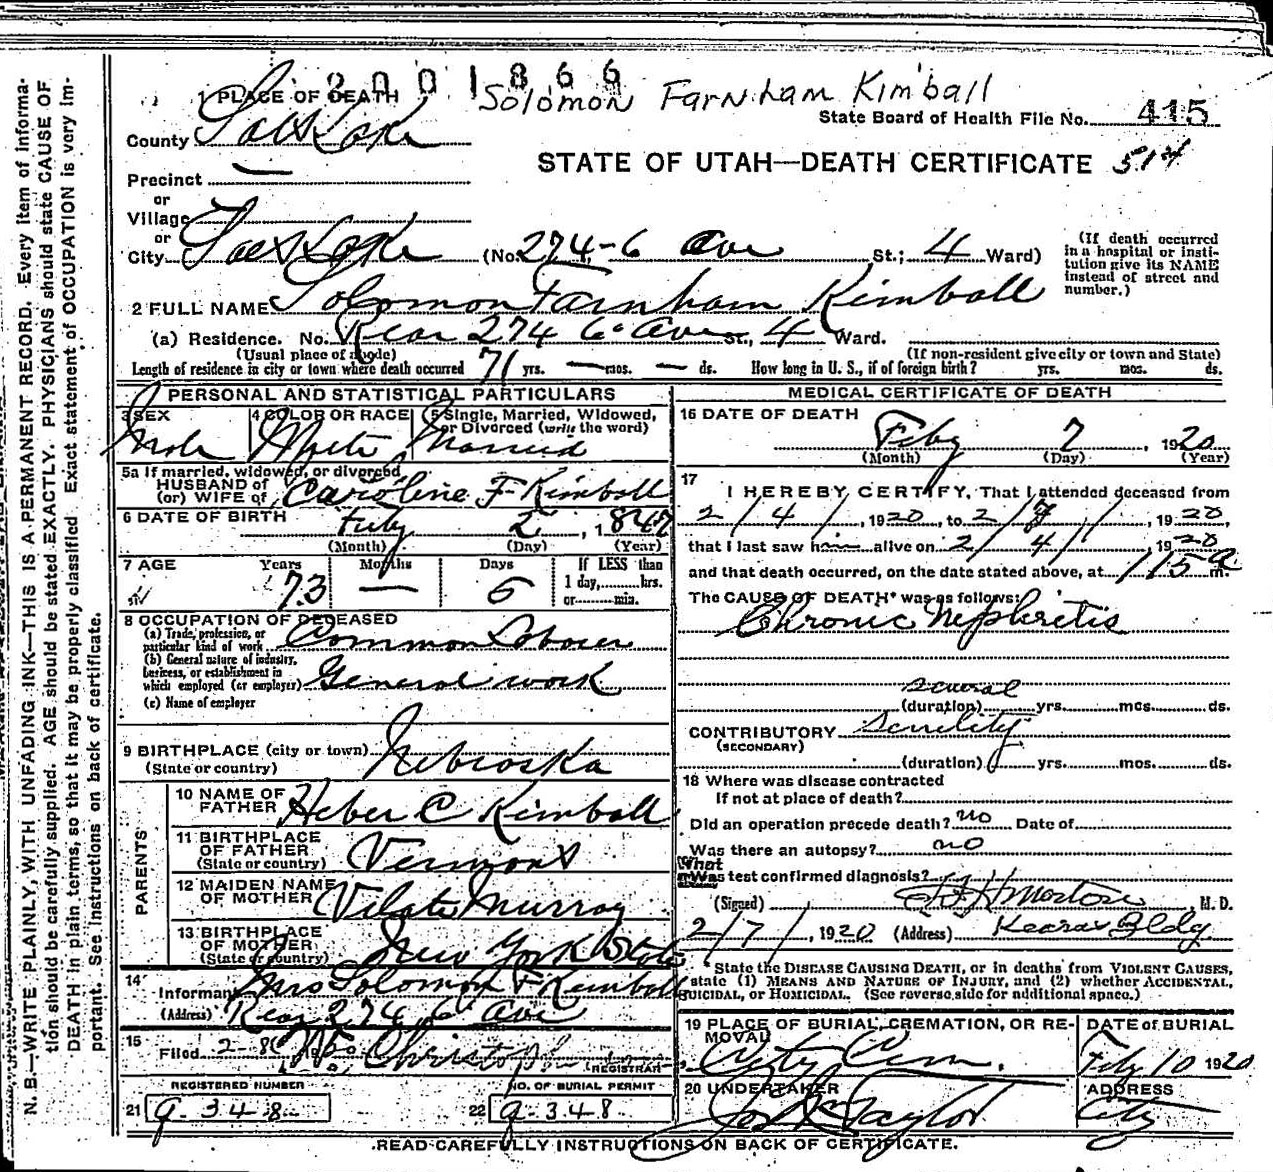 2001866
Solomon Farnham Kimball
1 PLACE OF DEATH
State Board of Health File No. 415
County Salt Lake
STATE OF UTAH—DEATH CERTIFICATE 514
Precinct —
or
Village
or
City Salt Lake (No. 274-6 Ave St.; 4 Ward)
(If death occurred in a hospital or institution give its NAME instead of street and number.)
2 FULL NAME Solomon Farnham Kimball
(a) Residence. No. Rear 274 6" Ave St., 4 Ward.
(Usual place of abode) (If non-resident give city or town and State)
Length of residence in city or town where death occurred 71 yrs. — mos. — ds. How long in U. S., if of foreign birth? yrs. mos. ds.
PERSONAL AND STATISTICAL PARTICULARS
3 SEX
Male
4 COLOR OR RACE
White
5 Single, Married, Widowed, or Divorced (write the word)
Married
5a If married, widowed, or divorced
HUSBAND of
(or) WIFE of Caroline F Kimball
6 DATE OF BIRTH
Feby 2, 1847
(Month) (Day) (Year)
7 AGE Years Months Days If LESS than
73 — 5 1 day, hrs.
or min.
8 OCCUPATION OF DECEASED
(a) Trade, profession, or
particular kind of work Common Laborer
(b) General nature of industry,
business, or establishment in
which employed (or employer) General work
(c) Name of employer
9 BIRTHPLACE (city or town) Nebraska
(State or country)
PARENTS
10 NAME OF FATHER Heber C Kimball
11 BIRTHPLACE OF FATHER Vermont
(State or country)
12 MAIDEN NAME OF MOTHER Vilate Murray
13 BIRTHPLACE OF MOTHER New York State
(State or country)
14
Informant Mrs Solomon F Kimball
(Address) Rear 274 6" Ave
15
Filed 2-8
REGISTRAR
REGISTERED NUMBER
21 g-348
NO. OF BURIAL PERMIT
22 g-348
MEDICAL CERTIFICATE OF DEATH
16 DATE OF DEATH
Feby 7, 1920
(Month) (Day) (Year)
17
I HEREBY CERTIFY, That I attended deceased from
2/4/, 1920, to 2/7/, 1920
that I last saw him alive on 2/4/ 1920
and that death occurred, on the date stated above, at 115 a m.
The CAUSE OF DEATH* was as follows:
Chronic Nephritis
several
(duration) yrs. mos. ds.
CONTRIBUTORY Senility
(SECONDARY)
(duration) yrs. mos. ds.
18 Where was disease contracted
If not at place of death?
Did an operation precede death? no Date of
Was there an autopsy? no
What
test confirmed diagnosis?
(Signed) M. D.
2/7/, 1920 (Address) Kearns Bldg.
*State the DISEASE CAUSING DEATH, or in deaths from VIOLENT CAUSES,
state (1) MEANS AND NATURE OF INJURY, and (2) whether ACCIDENTAL,
SUICIDAL, or HOMICIDAL. (See reverse side for additional space.)
19 PLACE OF BURIAL, CREMATION, OR REMOVAL
City Cem.
DATE of BURIAL
Feby 10 1920
20 UNDERTAKER
Taylor
ADDRESS
City
READ CAREFULLY INSTRUCTIONS ON BACK OF CERTIFICATE.
N. B.—WRITE PLAINLY, WITH UNFADING INK—THIS IS A PERMANENT RECORD. Every item of informa-
tion should be carefully supplied. AGE should be stated EXACTLY. PHYSICIANS should state CAUSE OF
DEATH in plain terms, so that it may be properly classified. Exact statement of OCCUPATION is very im-
portant. See instructions on back of certificate.